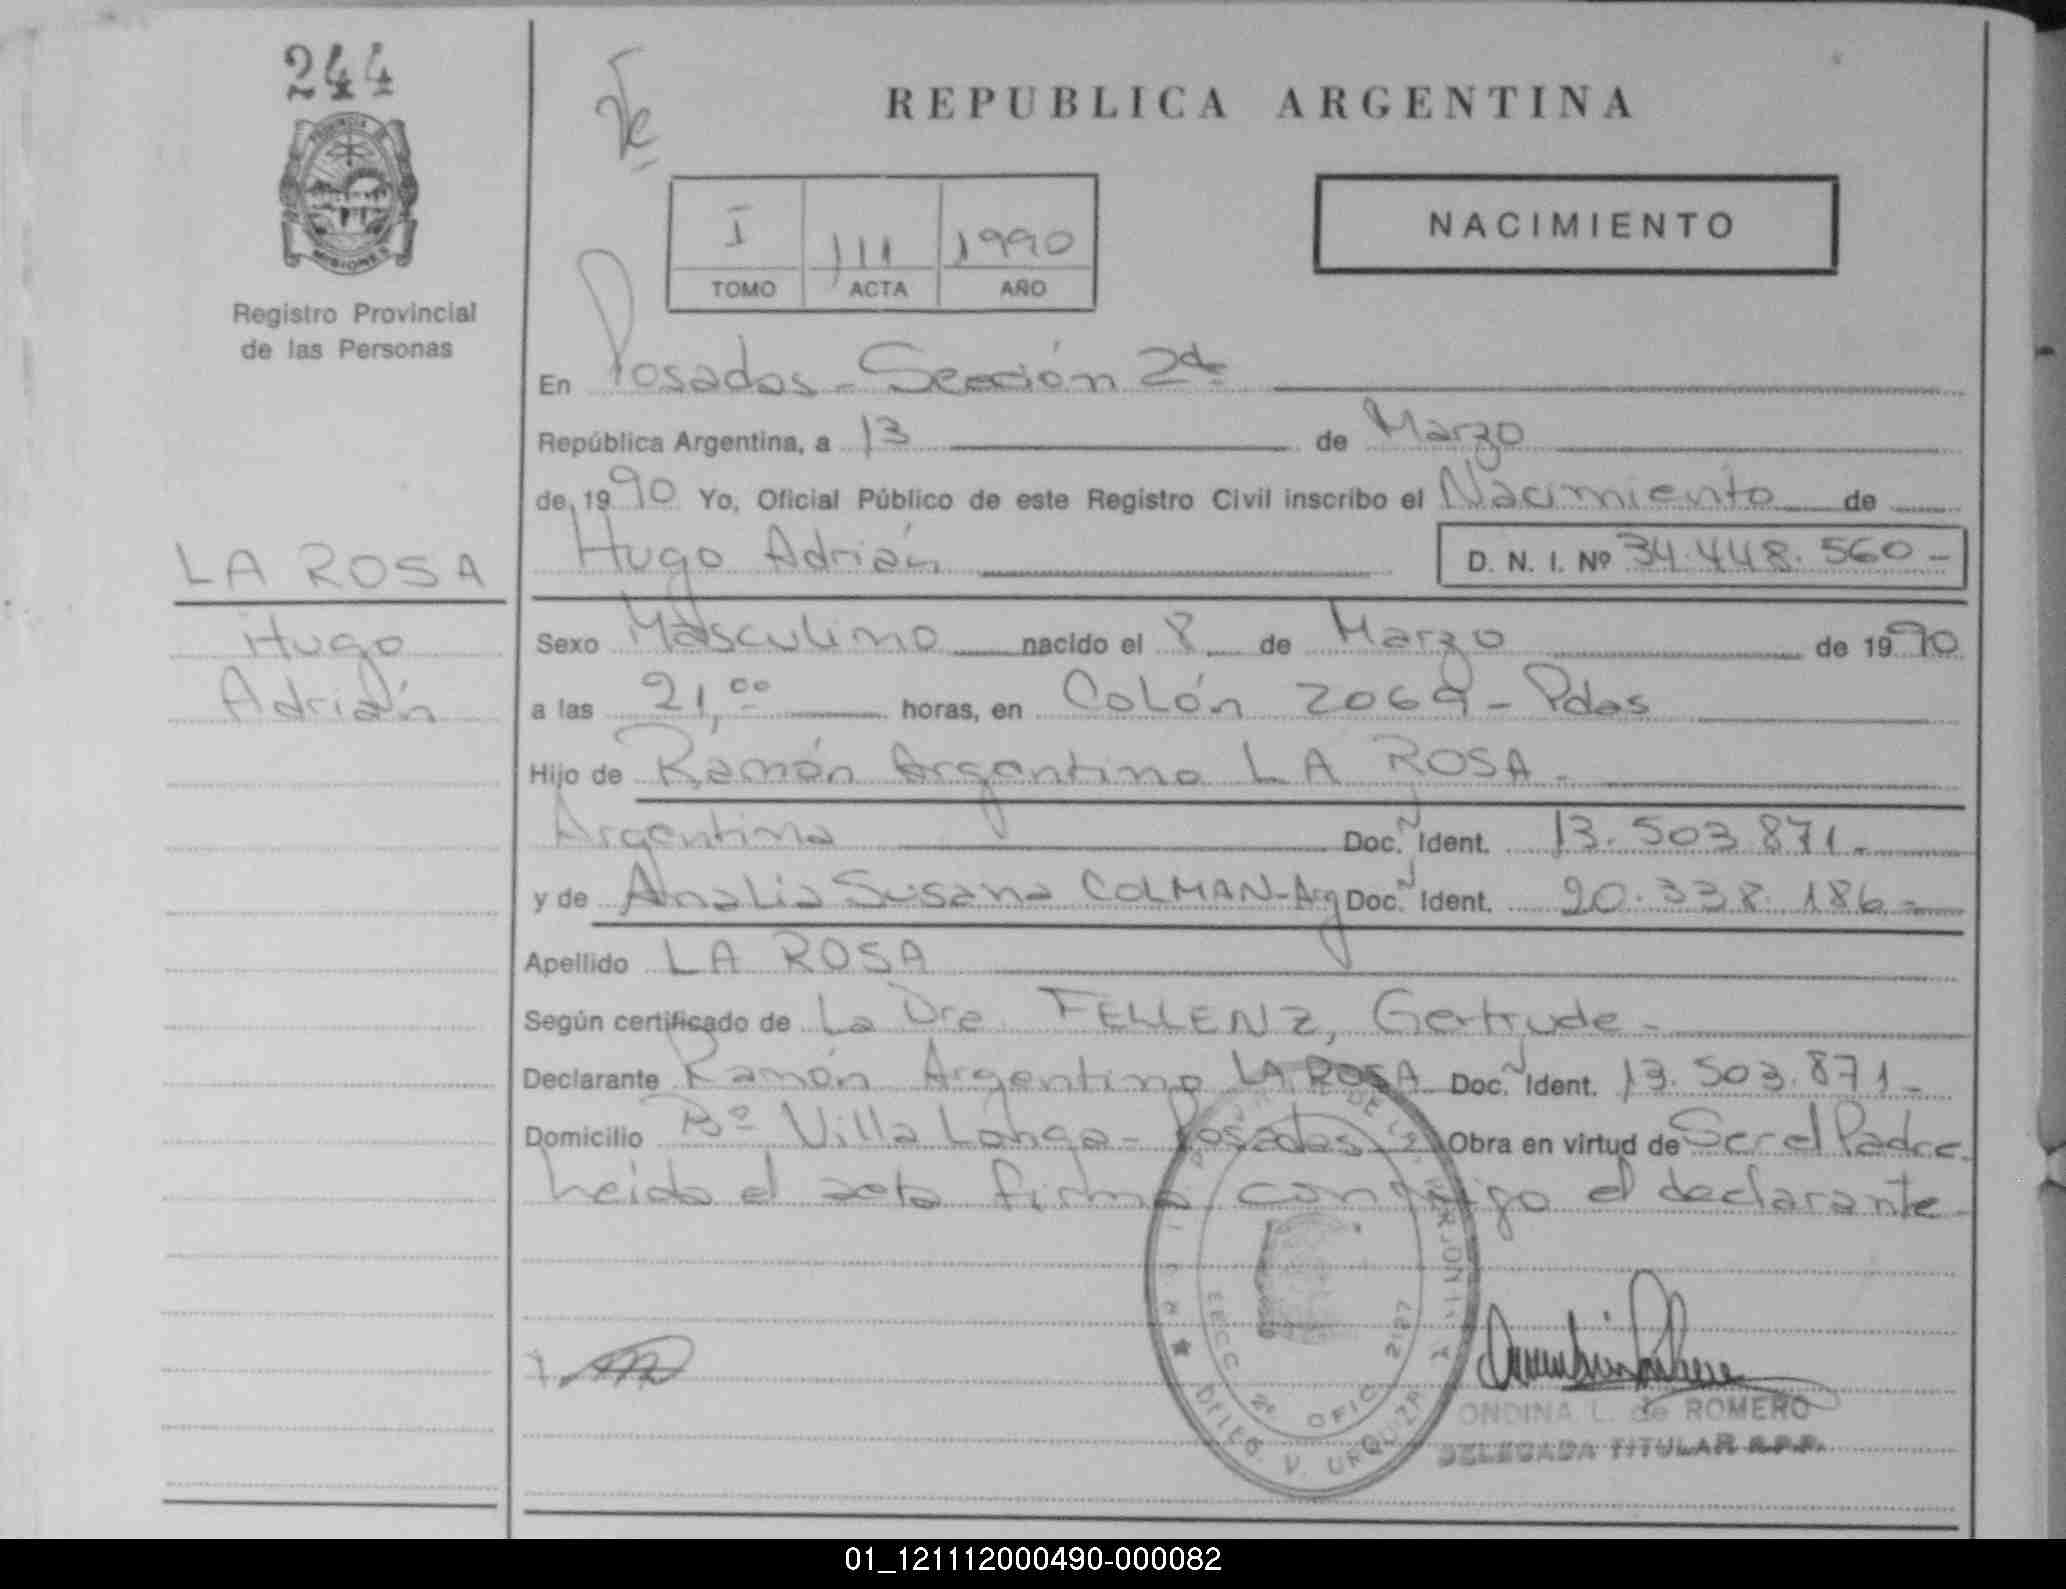 244
PROVINCIA DE
MISIONES
Registro Provincial
de las Personas
LA ROSA
Hugo
Adrián
REPUBLICA ARGENTINA
NACIMIENTO
I 111 1990
TOMO ACTA AÑO
En Posadas - Sección 2da
República Argentina, a 13 de Marzo
de 1990 Yo, Oficial Público de este Registro Civil inscribo el Nacimiento de
Hugo Adrián D. N. I. Nº 34.448.560-
Sexo Masculino nacido el 8 de Marzo de 1990
a las 21,00 horas, en Colón 2069 - Pdas
Hijo de Ramón Argentino LA ROSA-
Argentina Doc. N Ident. 13.503.871-
y de Analia Susana COLMAN-Arg Doc. N Ident. 20.338.186-
Apellido LA ROSA
Según certificado de La Dra FELLENZ, Gertrude-
Declarante Ramón Argentino LA ROSA Doc. N Ident. 13.503.871-
Domicilio Bº Villa Longa - Posadas Obra en virtud de Ser el Padre
Leida el acta firma conmigo el declarante
SECC 2º OFIC 2127
DELEG. V. URQUIZA
ONDINA L. de ROMERO
DELEGADA TITULAR R.P.P.
01_121112000490-000082